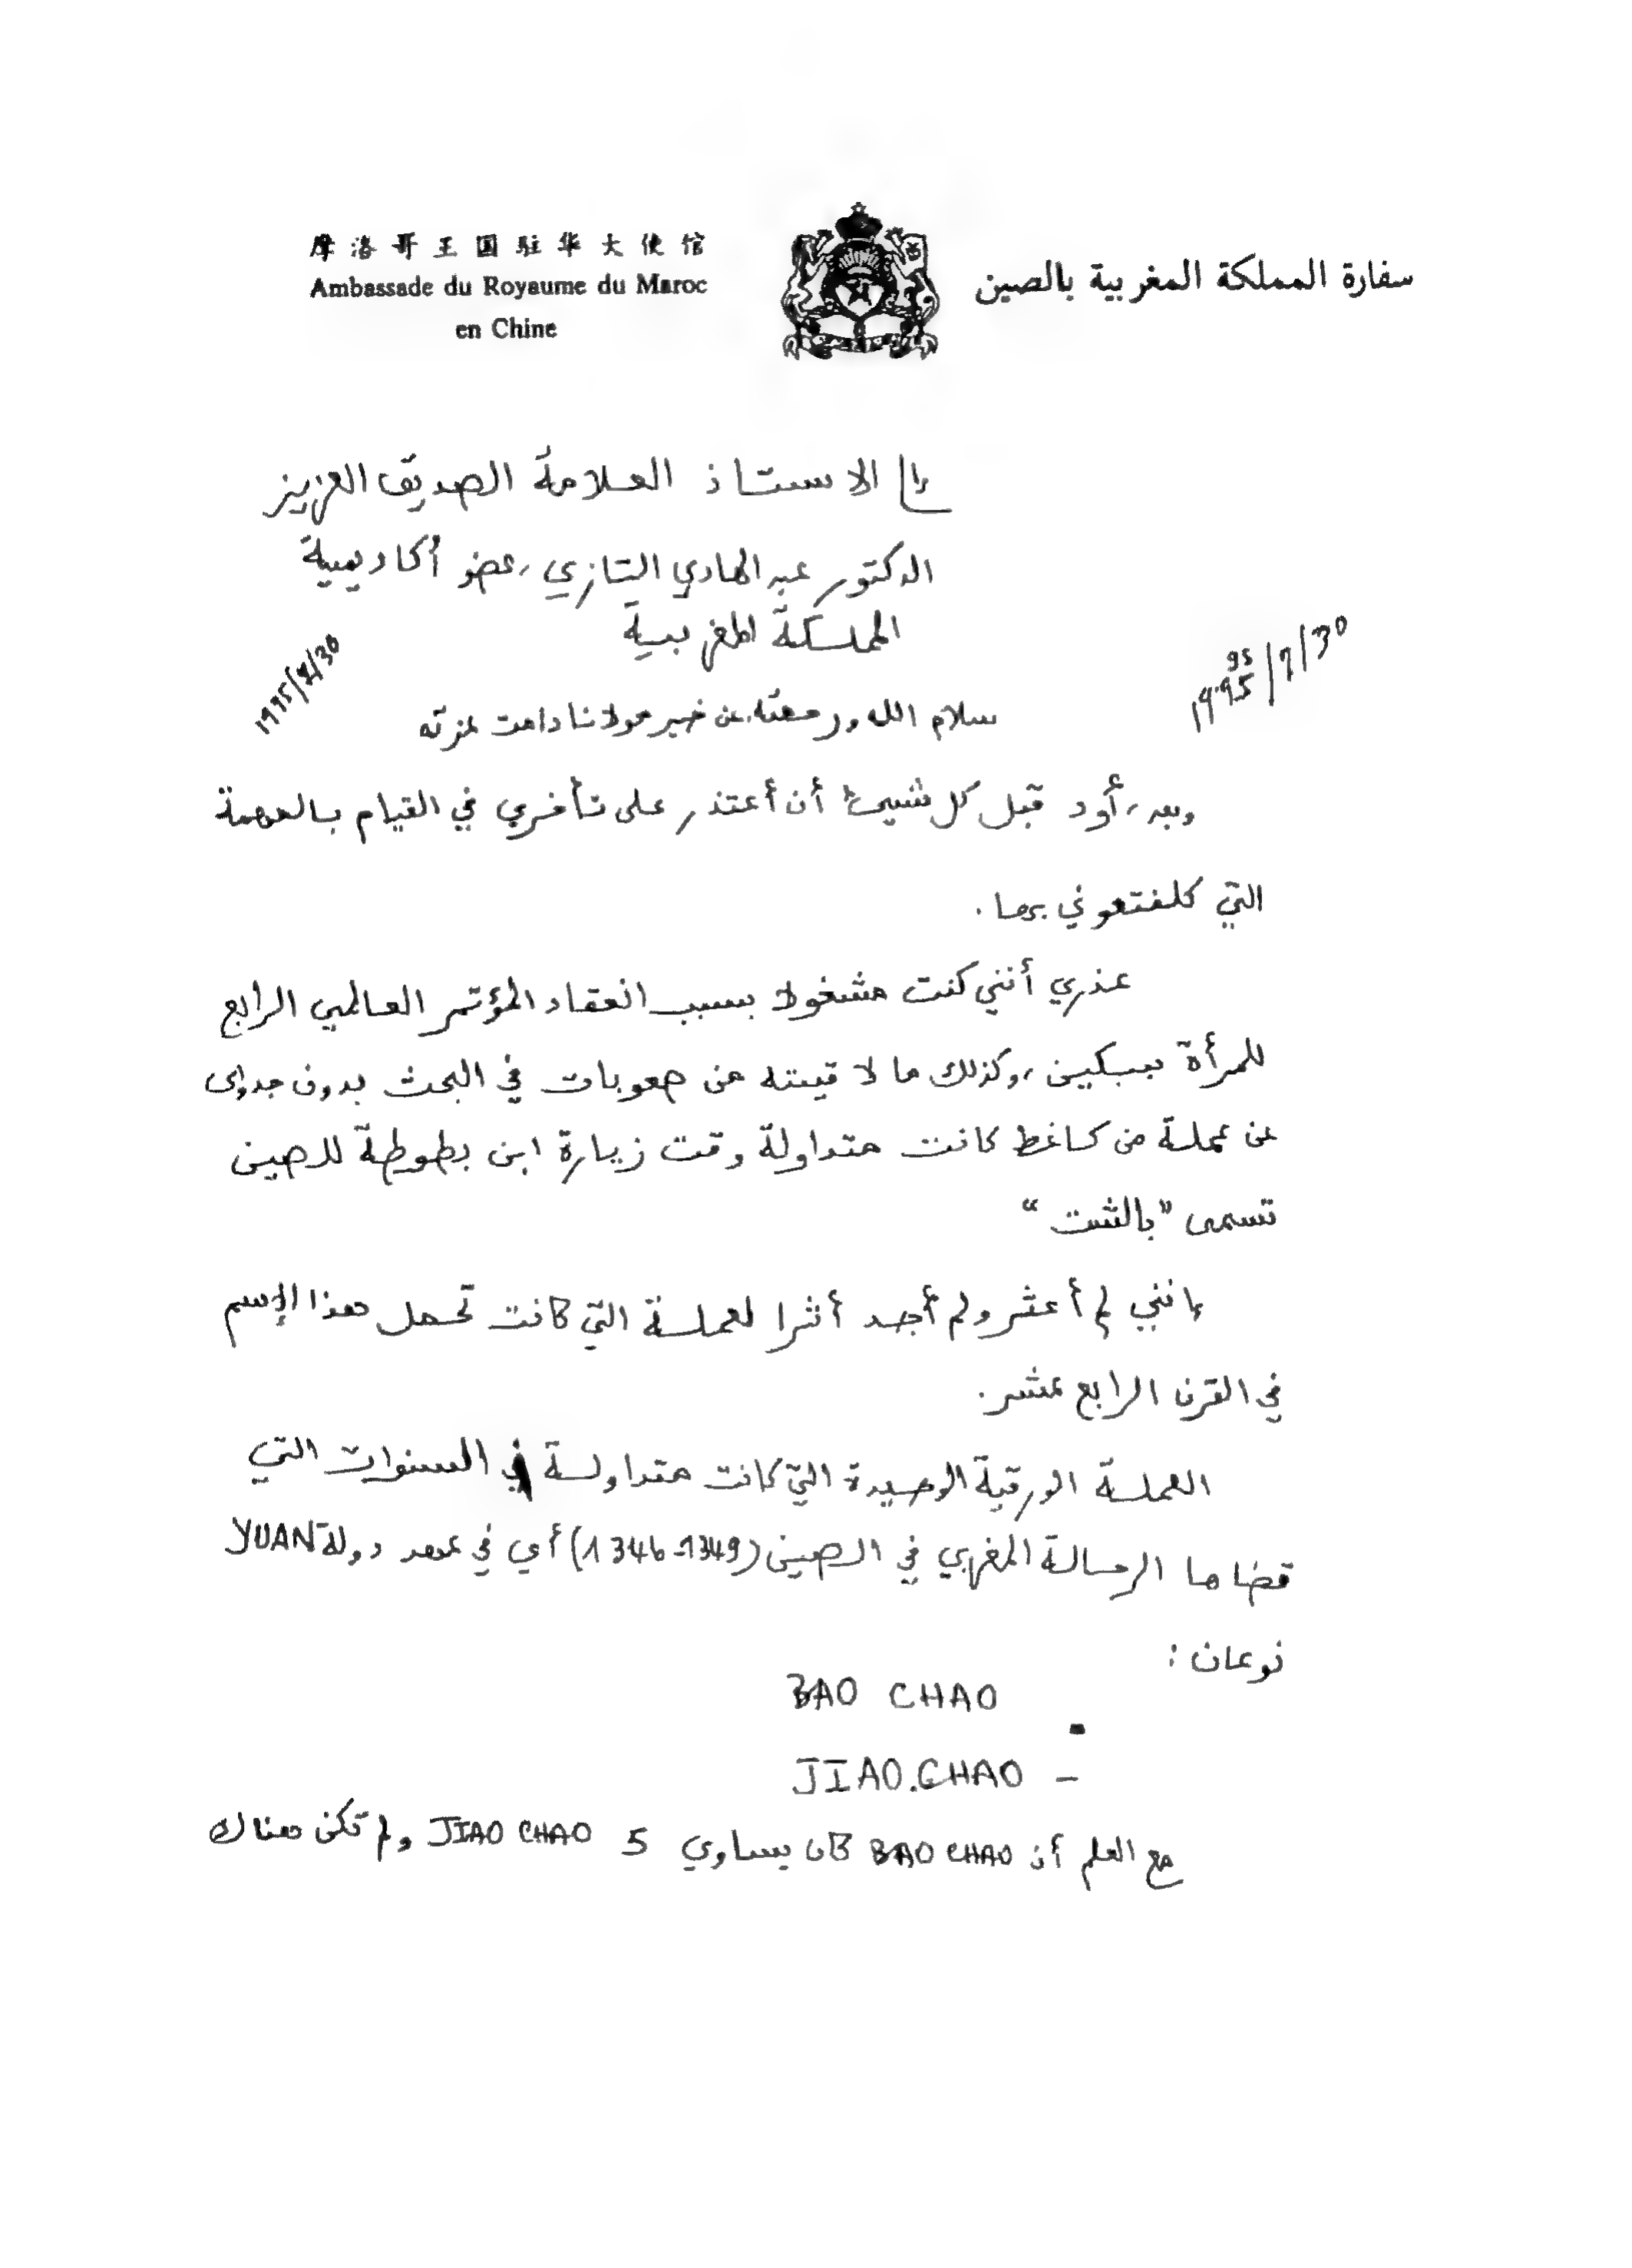 摩洛哥王国驻华大使馆
Ambassade du Royaume du Maroc
en Chine
سفارة المملكة المغربية بالصين
إلى الاستاذ العلامة الصديق العزيز
الدكتور عبد الهادي التازي، عضو أكاديمية
المملكة المغربية
1995/7/30
سلام الله ورحمته عن خير مولانا دامت عزته
وبعد، أود قبل كل شيئ أن أعتذر على تأخري في القيام بالمهمة
التي كلفتموني بها.
عذري أنني كنت مشغولا بسبب انعقاد المؤتمر العالمي الرابع
للمرأة ببيكين، وكذلك ما لاقيته من صعوبات في البحث بدون جدوى
عن عملة من كاغط كانت متداولة وقت زيارة ابن بطوطة للصين
تسمى "بالشت"
إنني لم أعثر ولم أجد أثرا لعملة التي كانت تحمل هذا الإسم
في القرن الرابع عشر.
العملة الورقية الوحيدة التي كانت متداولة في السنوات التي
قضاها الرحالة المغربي في الصين (1346-1349) أي في عهد دولة YUAN
نوعان :
BAO CHAO
- JIAO.CHAO
مع العلم أن BAO CHAO كان يساوي 5 JIAO CHAO ولم تكن هناك